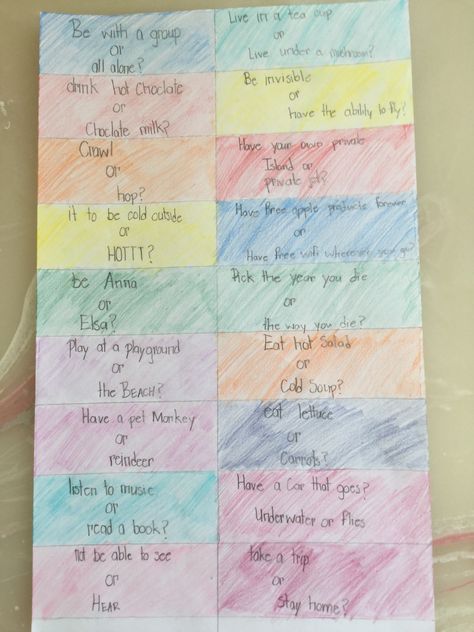 Be with a group
or
all alone?
Live in a tea cup
or
Live under a mushroom?
drink hot Choclate
or
Choclate milk?
Be invisible
or
have the ability to fly?
Crawl
or
hop?
Have your own private
Island or
private jet?
it to be cold outside
or
HOTTT?
Have free apple products forever
or
Have free wifi wherever you go?
be Anna
or
Elsa?
Pick the year you die
or
the way you die?
Play at a playground
or
the BEACH?
Eat hot Salad
or
Cold Soup?
Have a pet Monkey
or
reindeer
eat lettuce
or
Carrots?
listen to music
or
read a book?
Have a Car that goes?
Underwater or flies
not be able to see
or
HEAR
take a trip
or
Stay home?